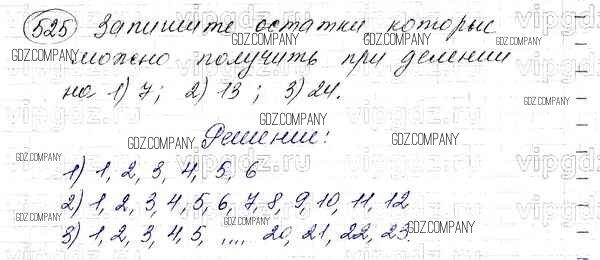 525 Запишите остатки которые
можно получить при делении
на 1) 7; 2) 13; 3) 24.
Решение:
1) 1, 2, 3, 4, 5, 6
2) 1, 2, 3, 4, 5, 6, 7, 8, 9, 10, 11, 12
3) 1, 2, 3, 4, 5, .... 20, 21, 22, 23.
GDZ.COMPANY
GDZ.COMPANY
GDZ.COMPANY
GDZ.COMPANY
GDZ.COMPANY
GDZ.COMPANY
GDZ.COMPANY
GDZ.COMPANY
GDZ.COMPANY
GDZ.COMPANY
GDZ.COMPANY
vipgdz.ru
vipgdz.ru
vipgdz.ru